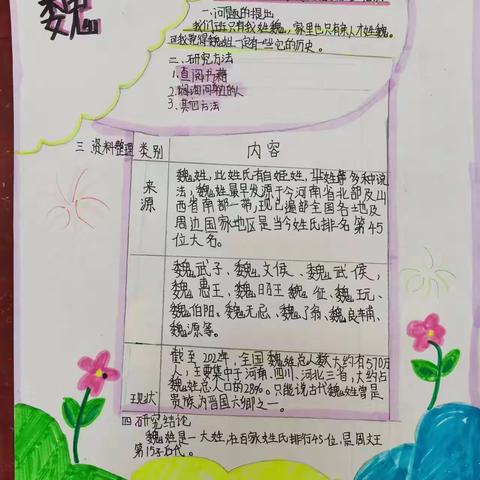 魏
一.问题的提出
我们班只有我姓魏,家里也只有亲人才姓魏。
可我觉得魏姓一定有一些它的历史。
二、研究方法
1.查阅书籍
2.询问同姓的人
3、其它方法
三 资料整理
类别 内容
来源
魏姓,此姓氏有自姬姓,芈姓等多种说
法,魏姓最早发源于今河南省北部及山
西省南部一带,现已遍部全国各地及
周边国家地区是当今姓氏排名第45
位大名。
魏武子、魏文侯、魏武侯,
魏惠王、魏昭王魏征、魏玩、
魏伯阳、魏无忌、魏了翁、魏良辅、
魏源等。
现状
截至202年,全国魏姓总人数大约有570万
人,主要集中于河南、四川、河北三省,大约占
魏姓总人口的28%。只能说古代魏姓曾是
贵族,为晋国六卿之一。
四 研究结论
魏姓是一大姓,在百家姓氏排行45位,是周文王
第15子后代。